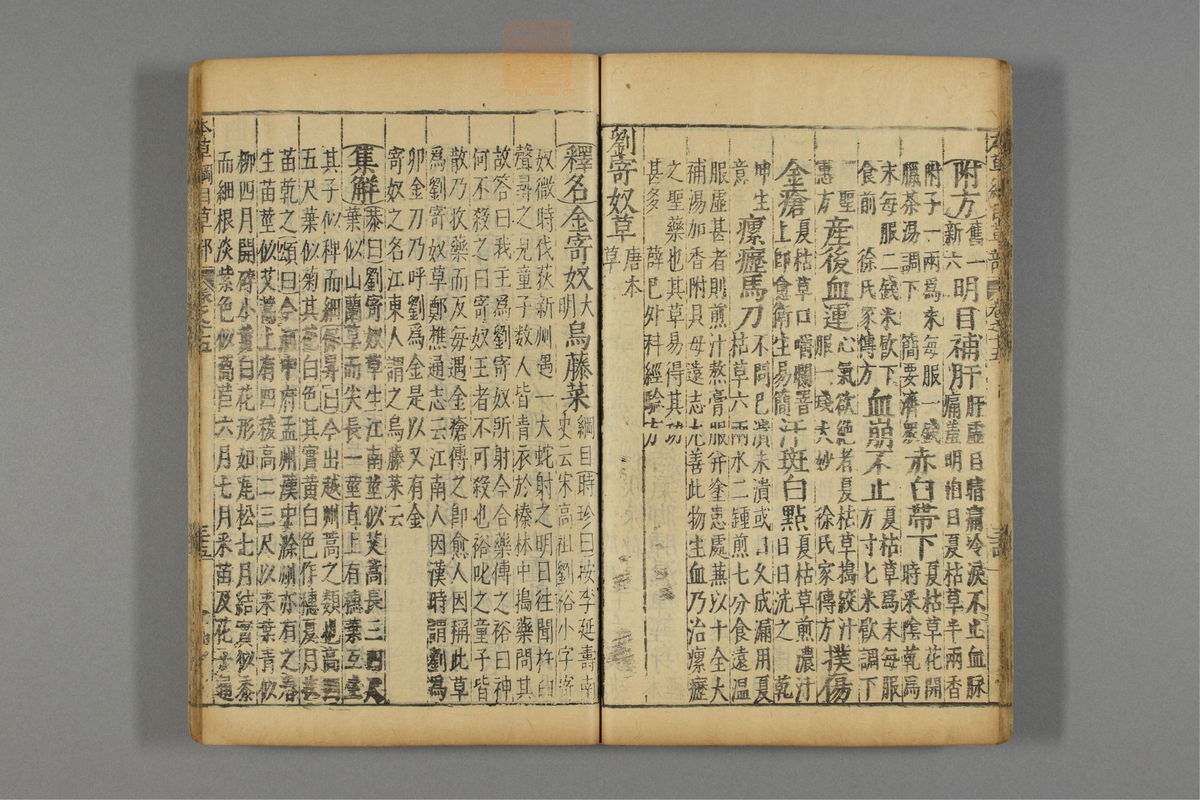 附方舊一新六明目補肝肝虛目睛痛冷淚不止血脉痛羞明怕日夏枯草半兩香
附子一兩爲末每服一錢臘茶湯調下簡要濟眾赤白帶下夏枯草花開時采陰乾爲
末每服二錢米飲下食前徐氏家傳方血崩不止夏枯草爲末每服方寸匕米飲調下
聖惠方產後血運心氣欲絕者夏枯草搗絞汁服一盞大妙徐氏家傳方撲傷
金瘡夏枯草口嚼爛罯上卽愈衛生易簡汗斑白點夏枯草煎濃汁日日洗之乾
坤生意瘰癧馬刀不問已潰未潰或日久成漏用夏枯草六兩水二鍾煎七分食遠溫
服虛甚者則煎汁熬膏服并塗患處兼以十全大
補湯加香附貝母遠志尤善此物生血乃治瘰癧
之聖藥也其草易得其功
甚多薛已外科經驗方
劉寄奴草唐本草
釋名金寄奴大明烏藤菜綱目時珍曰按李延壽南史云宋高祖劉裕小字寄
奴微時伐荻新洲遇一大蛇射之明日往聞杵臼
聲尋之見童子數人皆青衣於榛林中搗藥問其
故答曰我主爲劉寄奴所射今合藥傅之裕曰神
何不殺之曰寄奴王者不可殺也裕叱之童子皆
散乃收藥而反每遇金瘡傅之卽愈人因稱此草
爲劉寄奴草鄭樵通志云江南人因漢時謂劉爲
卯金刀乃呼劉爲金是以又有金
寄奴之名江東人謂之烏藤菜云
集解恭曰劉寄奴草生江南莖似艾蒿長三四尺葉似山蘭草而尖長一莖直上有穗葉互生
其子似稗而細保昇曰今出越州蒿之類也高四
五尺葉似菊其花白色其實黃白色作穗夏月
苗乾之頌曰今河中府孟州漢中滁州亦有之春
生苗莖似艾蒿上有四稜高二三尺以來葉青似
柳四月開碎小黃白花形如瓦松七月結實似黍
而細根淡紫色似萵苣六月七月采苗及花子通
本草綱目草部